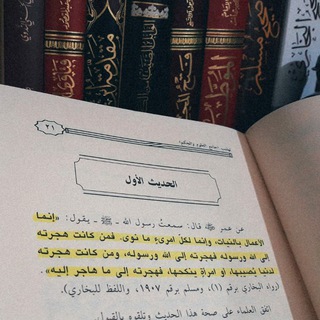 صحيح مسلم
الموطأ
فتح
٣١
الحديث الأول
عن عمر ﷺ قال: سمعتُ رسول الله - ﷺ - يقول: «إنما
الأعمال بالنيات، وإنما لكل امرىءٍ ما نوى. فمن كانت هجرته
إلى الله ورسوله، فهجرته إلى الله ورسوله، ومن كانت هجرته
لدنيا يُصيبها، أو امرأةٍ ينكحها، فهجرته إلى ما هاجر إليه».
(رواه البخاري برقم (١)، ومسلم برقم ١٩٠٧، واللفظ للبخاري).
اتفق العلماء على صحة هذا الحديث وتلقوه بالقبول